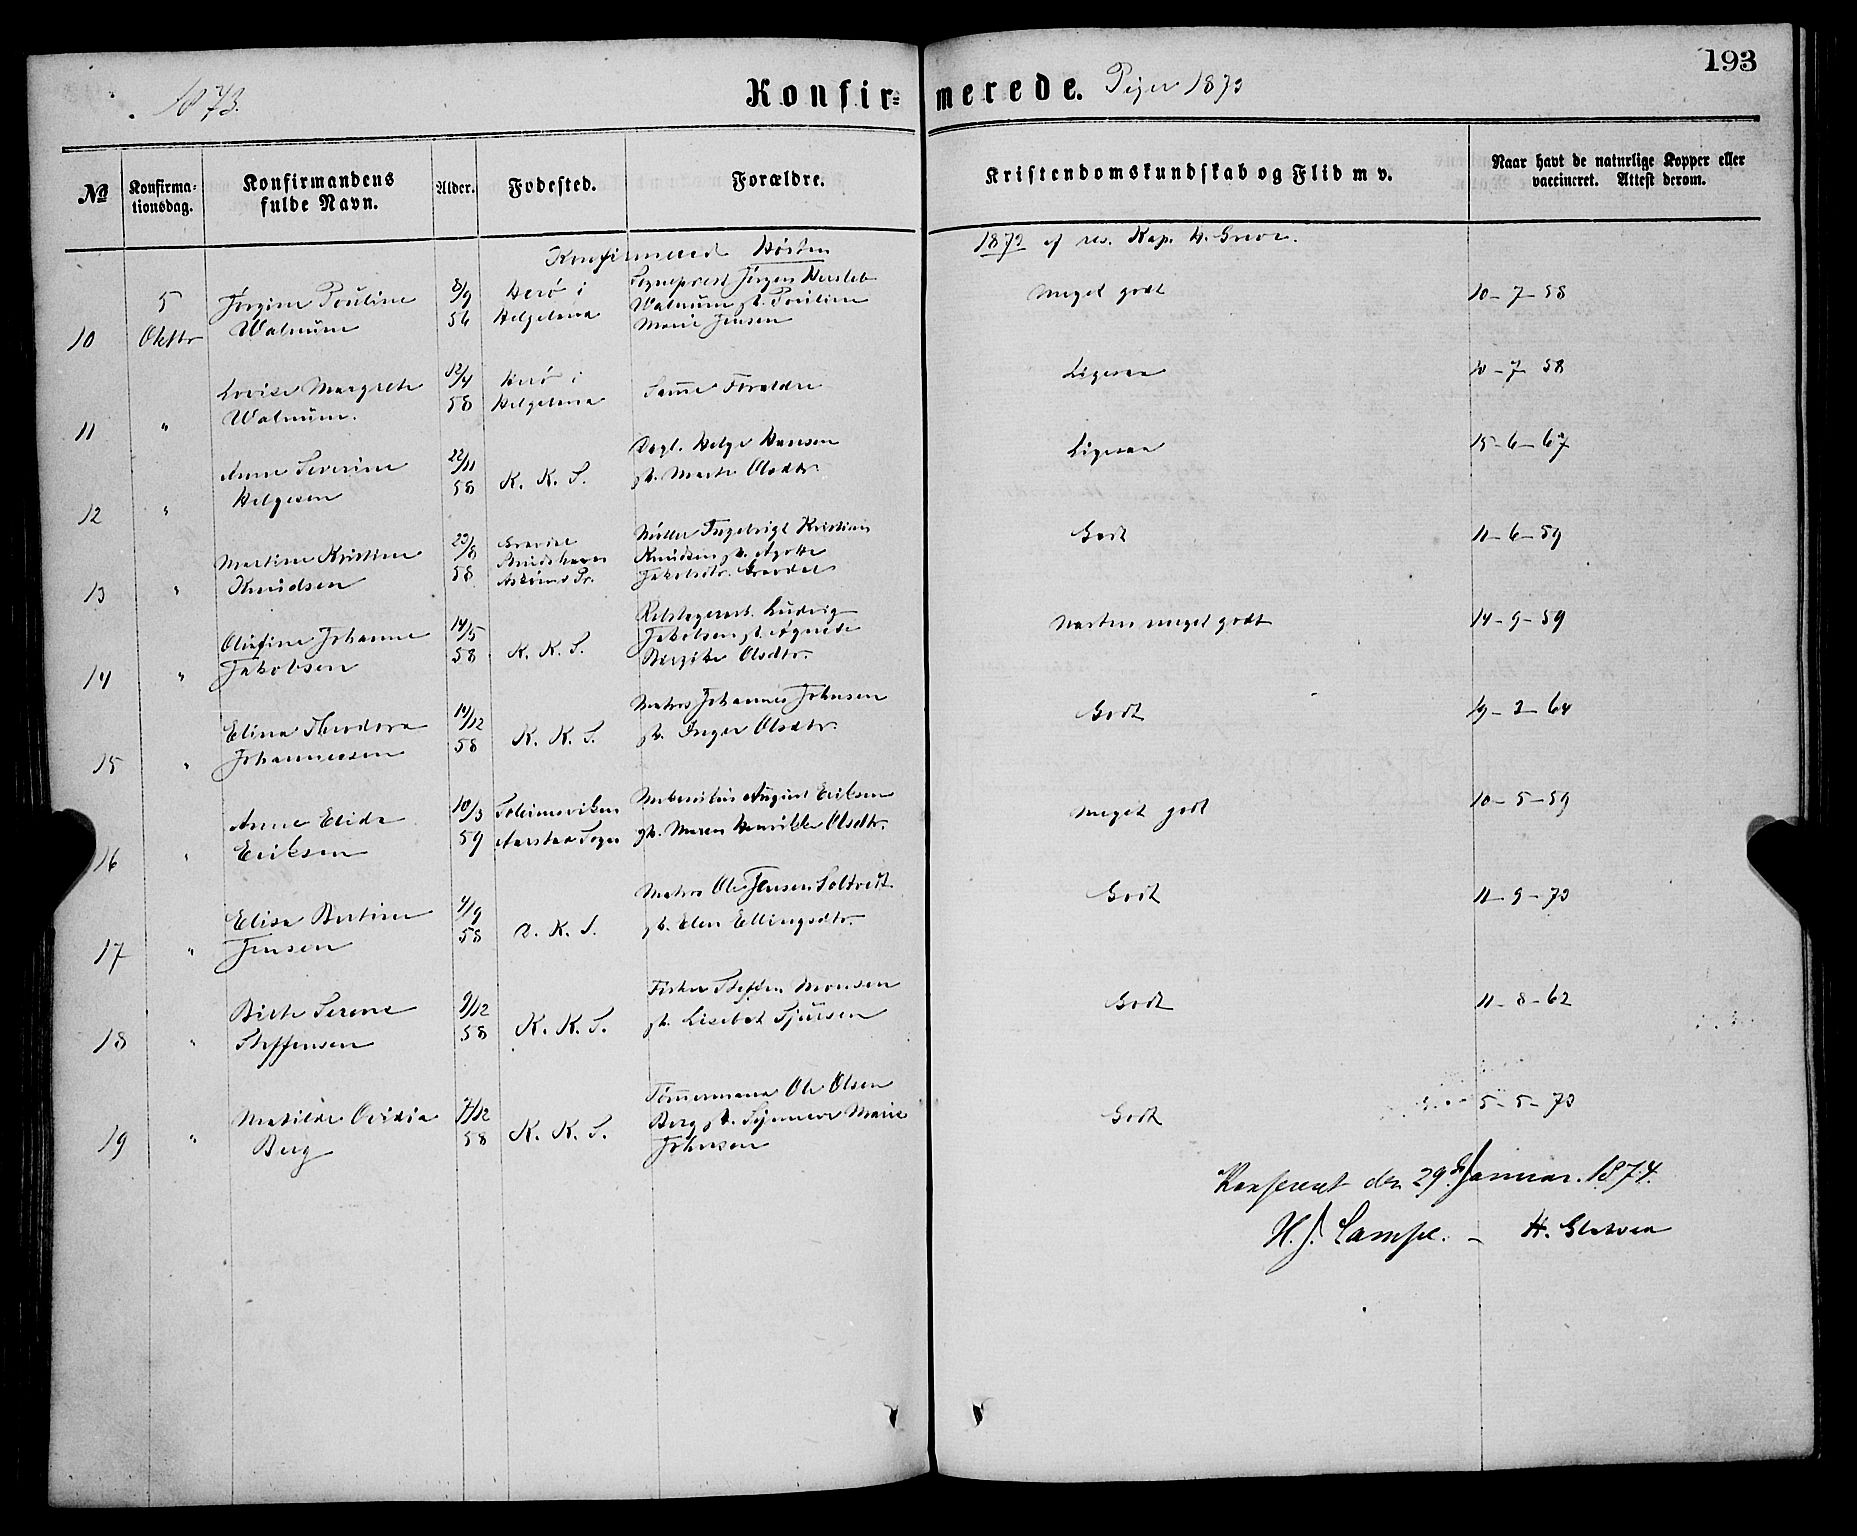 193
1873.
Konfir= merede. Piger 1873
No
Konfirma-
tionsdag.
Konfirmandens
fulde Navn.
Alder.
Fodested.
Forældre.
Kristendomskundskab og Flid m v.
Naar havt de naturlige Kopper eller
vaccineret. Attest derom.
Konfirmered Høsten 1873 af res. Kap. H. Greve.
10
5
Oktbr
Jørgine Pouline
Walnum
8/9
56
Herø i
Helgeland
Sogneprest Jørgen Hersleb
Walnum gb. Pouline
Marie Jensen
Meget godt
10-7-58
11
"
Lovise Margrete
Walnum.
12/4
58
Herø i
Helgeland
Samme Forældre
Ligesaa
10-7-58
12
"
Anne Severine
Helgesen
22/11
58
K. K. S.
Dagl. Helge Hansen
gb. Marte Olsdtr.
Ligesaa
15-6-67
13
"
Martine Kristine
Knudsen
23/8
58
Askøens Pr.
Møller Ingebrigt Kristian
Knudsen gb. Agote
Jakobsdtr. Gravdal
Godt
11-6-59
14
"
Olufine Johanne
Jakobsen
14/5
58
K. K. S.
Rebslagersv. Ludvig
Jakobsen gb. Agnete
Birgitte Olsdtr.
Næsten meget godt
14-9-59
15
"
Elina Theodora
Johannessen
10/12
58
K. K. S.
Matros Johannes Johnsen
gb. Inger Olsdtr.
Godt
19-2-64
16
"
Anne Elida
Eriksen
10/3
59
Soleimsviken
Aarstad Sogn
August Eriksen
gb. Maren Henrikke Olsdtr.
Meget godt
10-5-59
17
"
Elisa Bertine
Jensen
4/9
58
K. S.
Matros Ole Jensen Soltvedt
gb. Elen Ellingsdtr.
Godt
11-9-73
18
"
Birte Serene
Steffensen
9/12
58
K. K. S.
Fisker Steffen Monsen
gb. Lisebet Sjursen
Godt
11-8-62
19
"
Matilde Ovidia
Berg
7/12
58
K. K. S.
Tømmermand Ole Olsen
Berg gb. Synneve Marie
Johnsen
Godt
5-5-73
Konfereret den 29de Januar. 1874.
H. J. Lampe. -